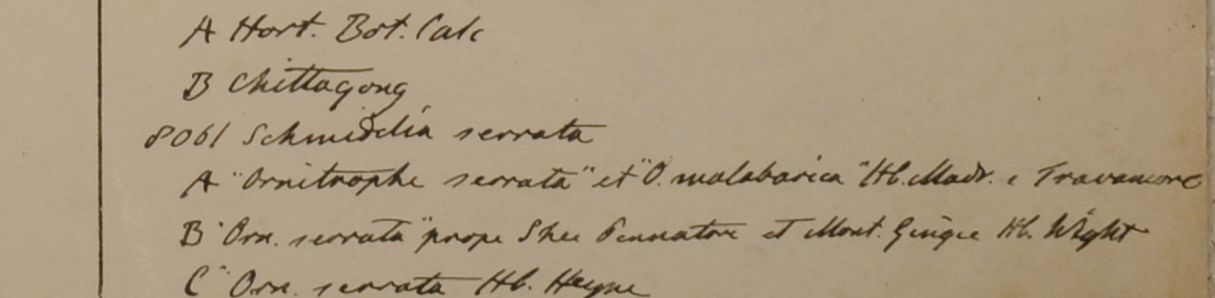 A Hort. Bot. Calc
B Chittagong
8061 Schmidelia serrata
A "Ornitrophe serrata" et "O. malabarica" Hb. Madr. e Travancore
B "Orn. serrata" prope Shee et Mont. Gingee Hb. Wight
C "Orn. serrata Hb. Heyne